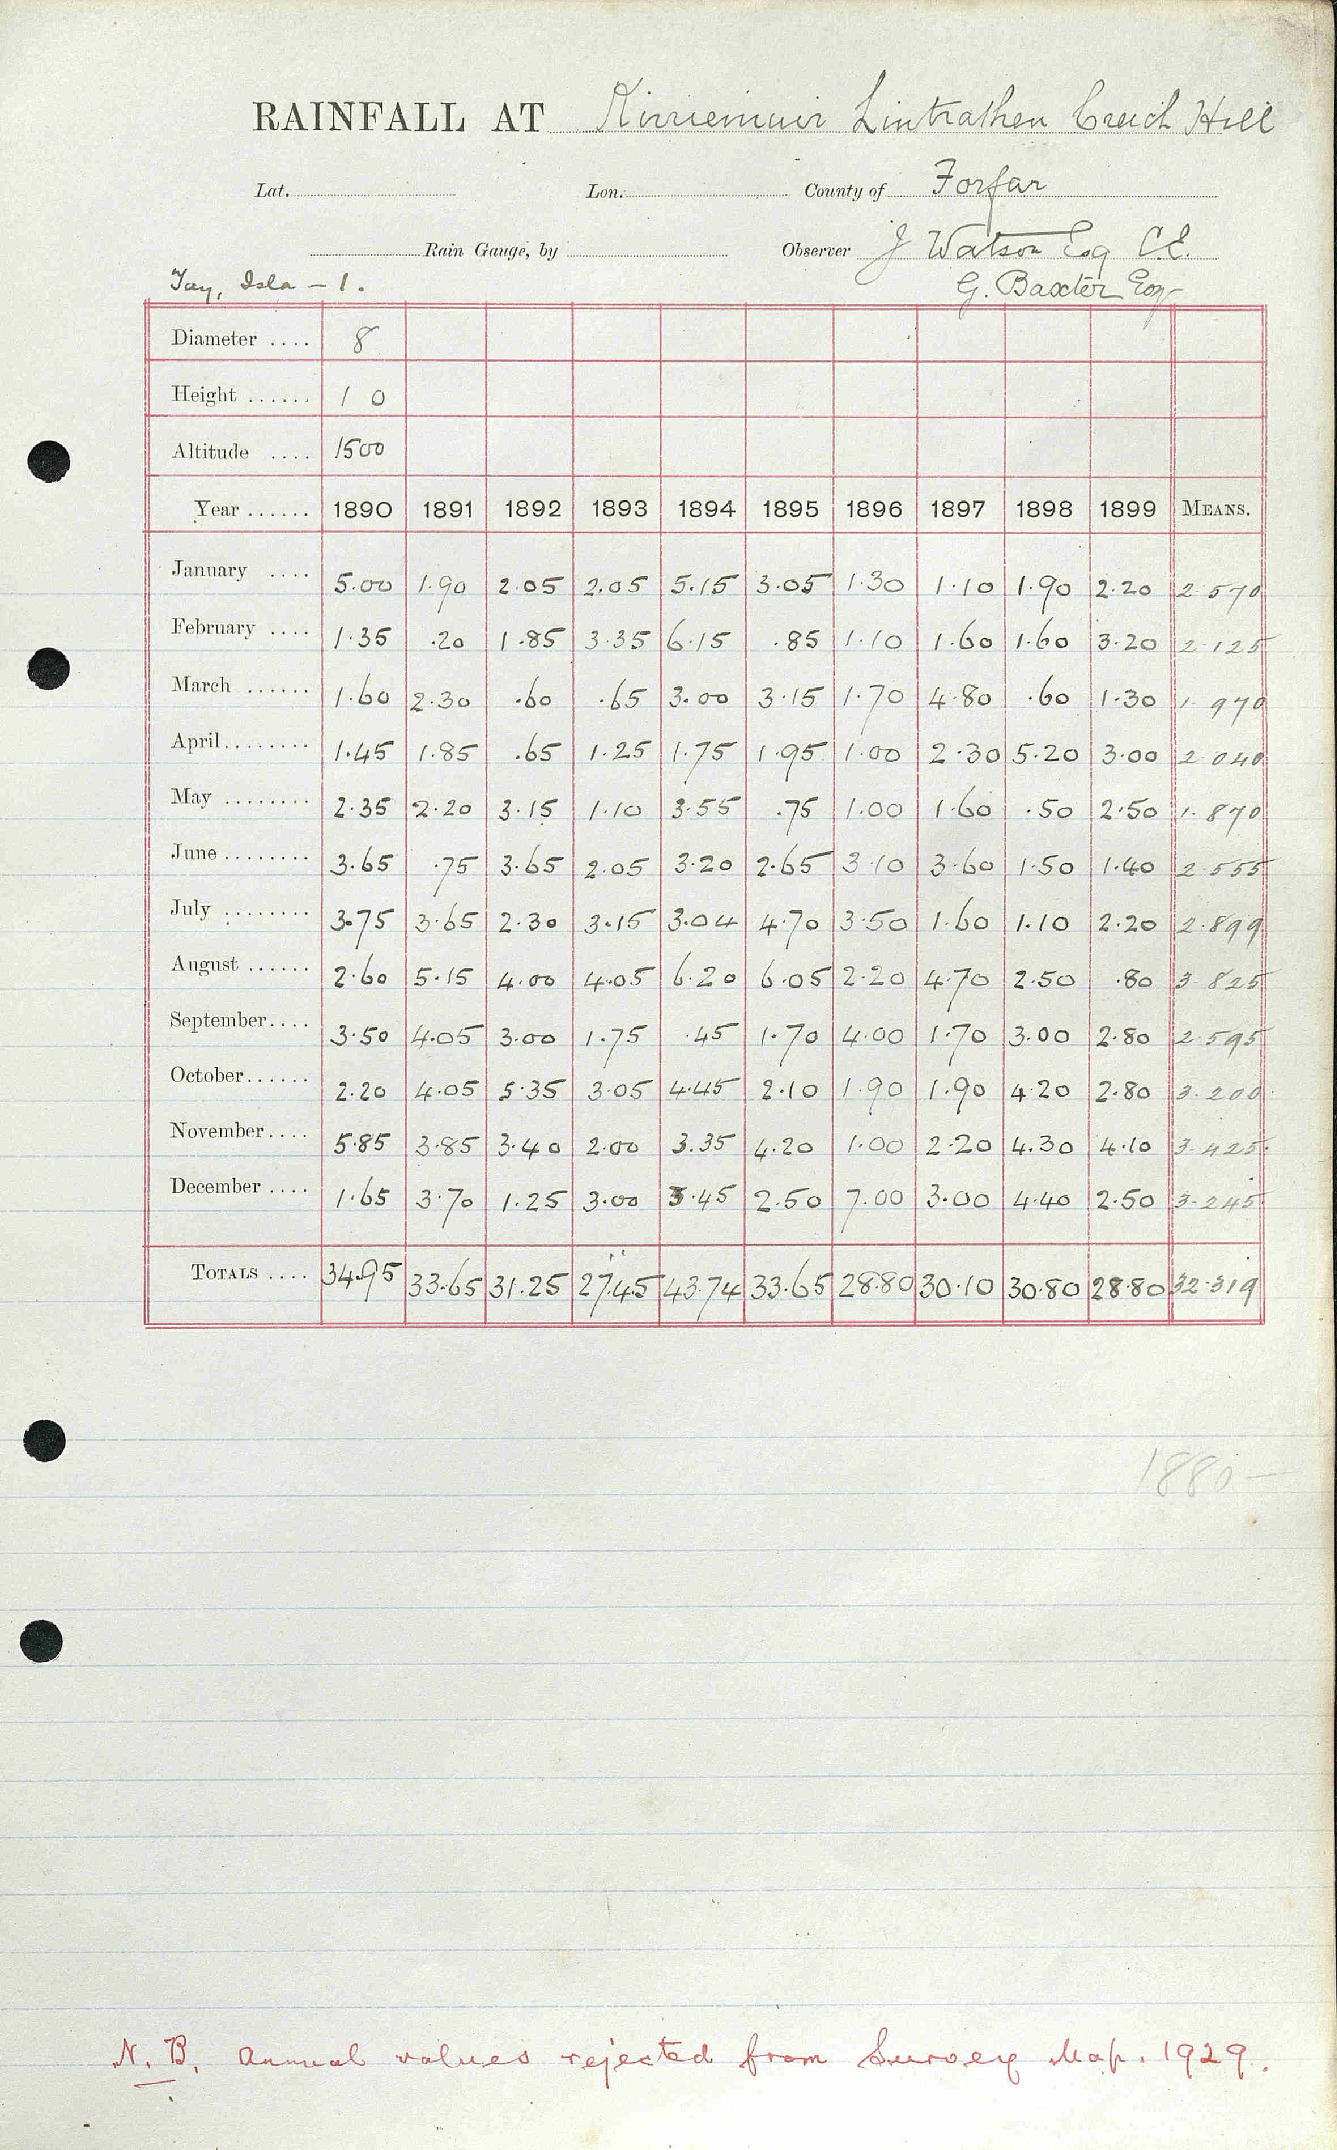 RAINFALL AT Kirriemuir Lintrathen Creich Hill
Lat. Lon. County of Forfar
Rain Gauge, by Observer J Watson Esq C.E.
Tay, Isla – 1. G. Baxter Esq
Diameter .... 8
Height ...... 1 0
Altitude .... 1500
Year ...... 1890 1891 1892 1893 1894 1895 1896 1897 1898 1899 MEANS.
January .... 5.00 1.90 2.05 2.05 5.15 3.05 1.30 1.10 1.90 2.20 2.570
February .... 1.35 .20 1.85 3.35 6.15 .85 1.10 1.60 1.60 3.20 2.125
March ...... 1.60 2.30 .60 .65 3.00 3.15 1.70 4.80 .60 1.30 1.970
April ........ 1.45 1.85 .65 1.25 1.75 1.95 1.00 2.30 5.20 3.00 2.040
May ........ 2.35 2.20 3.15 1.10 3.55 .75 1.00 1.60 .50 2.50 1.870
June ........ 3.65 .75 3.65 2.05 3.20 2.65 3.10 3.60 1.50 1.40 2.555
July ........ 3.75 3.65 2.30 3.15 3.04 4.70 3.50 1.60 1.10 2.20 2.899
August ...... 2.60 5.15 4.00 4.05 6.20 6.05 2.20 4.70 2.50 .80 3.825
September.... 3.50 4.05 3.00 1.75 .45 1.70 4.00 1.70 3.00 2.80 2.595
October...... 2.20 4.05 5.35 3.05 4.45 2.10 1.90 1.90 4.20 2.80 3.200
November.... 5.85 3.85 3.40 2.00 3.35 4.20 1.00 2.20 4.30 4.10 3.425
December .... 1.65 3.70 1.25 3.00 3.45 2.50 7.00 3.00 4.40 2.50 3.245
TOTALS .... 34.95 33.65 31.25 27.45 43.74 33.65 28.80 30.10 30.80 28.80 32.319
1880 —
N. B. Annual values rejected from Survey Map. 1929.